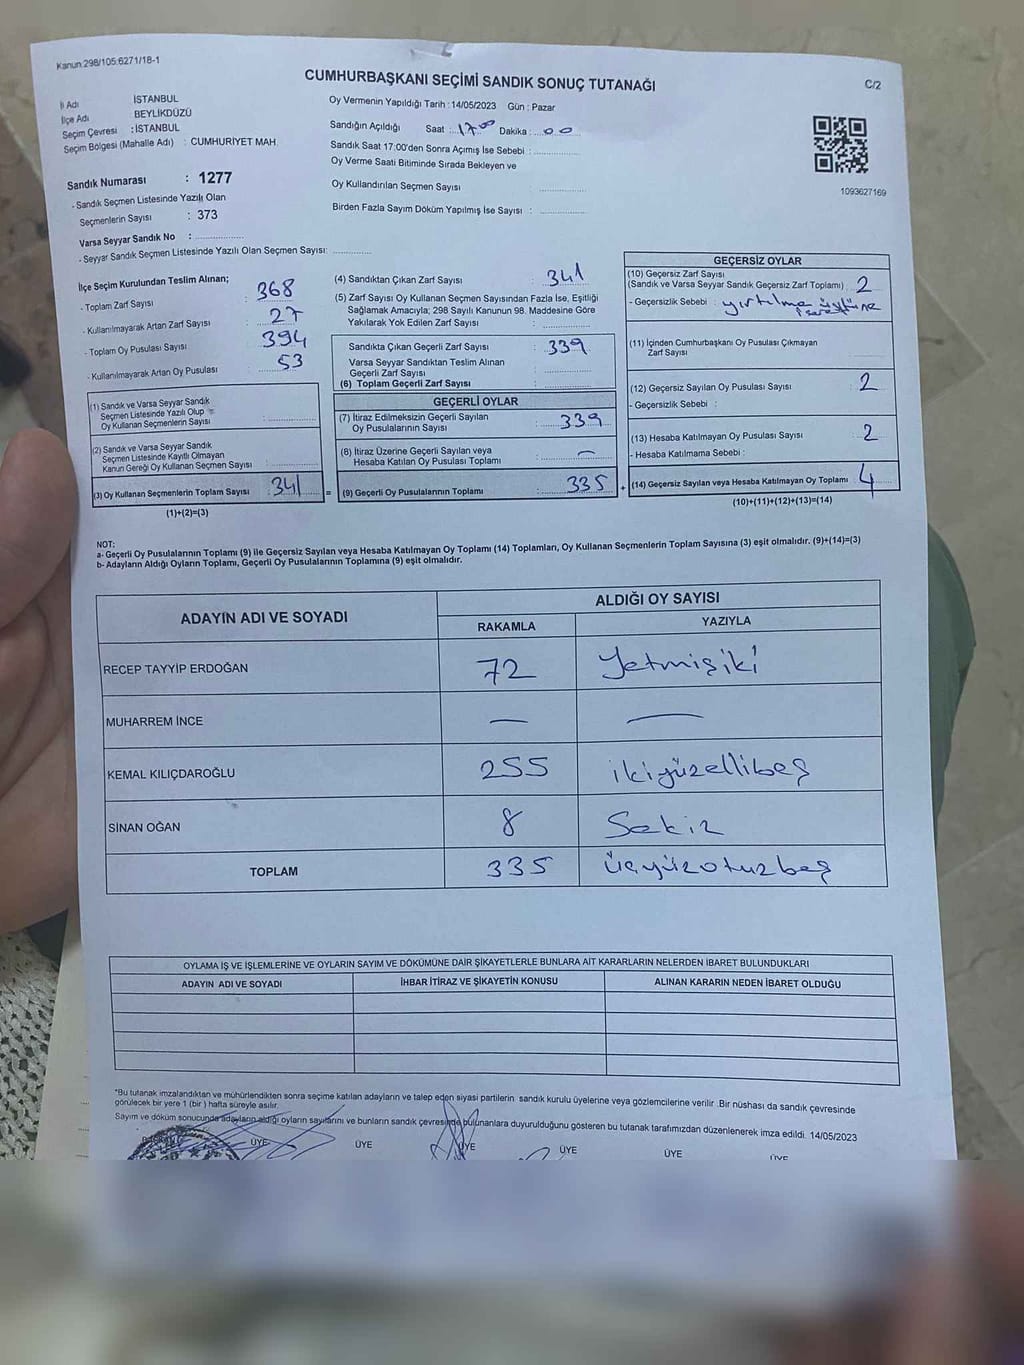 Kanun:298/105:6271/18-1
CUMHURBAŞKANI SEÇİMİ SANDIK SONUÇ TUTANAĞI
C/2
İl Adı İSTANBUL
İlçe Adı BEYLİKDÜZÜ
Seçim Çevresi : İSTANBUL
Seçim Bölgesi (Mahalle Adı) : CUMHURİYET MAH.
Oy Vermenin Yapıldığı Tarih : 14/05/2023 Gün : Pazar
Sandığın Açıldığı Saat : 17.00 Dakika : 00
Sandık Saat 17:00'den Sonra Açımış İse Sebebi :
Oy Verme Saati Bitiminde Sırada Bekleyen ve
Oy Kullandırılan Seçmen Sayısı
Birden Fazla Sayım Döküm Yapılmış İse Sayısı :
1093627169
Sandık Numarası : 1277
- Sandık Seçmen Listesinde Yazılı Olan
Seçmenlerin Sayısı : 373
Varsa Seyyar Sandık No :
- Seyyar Sandık Seçmen Listesinde Yazılı Olan Seçmen Sayısı:
İlçe Seçim Kurulundan Teslim Alınan;
- Toplam Zarf Sayısı : 368
- Kullanılmayarak Artan Zarf Sayısı : 27
- Toplam Oy Pusulası Sayısı : 394
- Kullanılmayarak Artan Oy Pusulası : 53
(1) Sandık ve Varsa Seyyar Sandık
Seçmen Listesinde Yazılı Olup
Oy Kullanan Seçmenlerin Sayısı :
(2) Sandık ve Varsa Seyyar Sandık
Seçmen Listesinde Kayıtlı Olmayan
Kanun Gereği Oy Kullanan Seçmen Sayısı :
(3) Oy Kullanan Seçmenlerin Toplam Sayısı : 341 =
(1)+(2)=(3)
(4) Sandıktan Çıkan Zarf Sayısı : 341
(5) Zarf Sayısı Oy Kullanan Seçmen Sayısından Fazla İse, Eşitliği
Sağlamak Amacıyla; 298 Sayılı Kanunun 98. Maddesine Göre
Yakılarak Yok Edilen Zarf Sayısı :
Sandıkta Çıkan Geçerli Zarf Sayısı : 339
Varsa Seyyar Sandıktan Teslim Alınan
Geçerli Zarf Sayısı :
(6) Toplam Geçerli Zarf Sayısı :
GEÇERLİ OYLAR
(7) İtiraz Edilmeksizin Geçerli Sayılan
Oy Pusulalarının Sayısı : 339
(8) İtiraz Üzerine Geçerli Sayılan veya
Hesaba Katılan Oy Pusulası Toplamı : —
(9) Geçerli Oy Pusulalarının Toplamı : 335 +
GEÇERSİZ OYLAR
(10) Geçersiz Zarf Sayısı
(Sandık ve Varsa Seyyar Sandık Geçersiz Zarf Toplamı) : 2
- Geçersizlik Sebebi : yırtılma üstüne
(11) İçinden Cumhurbaşkanı Oy Pusulası Çıkmayan
Zarf Sayısı
(12) Geçersiz Sayılan Oy Pusulası Sayısı : 2
- Geçersizlik Sebebi :
(13) Hesaba Katılmayan Oy Pusulası Sayısı : 2
- Hesaba Katılmama Sebebi :
(14) Geçersiz Sayılan veya Hesaba Katılmayan Oy Toplamı : 4
(10)+(11)+(12)+(13)=(14)
NOT:
a- Geçerli Oy Pusulalarının Toplamı (9) ile Geçersiz Sayılan veya Hesaba Katılmayan Oy Toplamı (14) Toplamları, Oy Kullanan Seçmenlerin Toplam Sayısına (3) eşit olmalıdır. (9)+(14)=(3)
b- Adayların Aldığı Oyların Toplamı, Geçerli Oy Pusulalarının Toplamına (9) eşit olmalıdır.
ADAYIN ADI VE SOYADI ALDIĞI OY SAYISI
RAKAMLA YAZIYLA
RECEP TAYYİP ERDOĞAN 72 Yetmişiki
MUHARREM İNCE — —
KEMAL KILIÇDAROĞLU 255 ikiyüzellibeş
SİNAN OĞAN 8 Sekiz
TOPLAM 335 üçyüzotuzbeş
OYLAMA İŞ VE İŞLEMLERİNE VE OYLARIN SAYIM VE DÖKÜMÜNE DAİR ŞİKAYETLERLE BUNLARA AİT KARARLARIN NELERDEN İBARET BULUNDUKLARI
ADAYIN ADI VE SOYADI İHBAR İTİRAZ VE ŞİKAYETİN KONUSU ALINAN KARARIN NEDEN İBARET OLDUĞU
*Bu tutanak imzalandıktan ve mühürlendikten sonra seçime katılan adayların ve talep eden siyasi partilerin sandık kurulu üyelerine veya gözlemcilerine verilir .Bir nüshası da sandık çevresinde
görülecek bir yere 1 (bir ) hafta süreyle asılır.
Sayım ve döküm sonucunda adayların aldığı oyların sayılarını ve bunların sandık çevresinde bulunanlara duyurulduğunu gösteren bu tutanak tarafımızdan düzenlenerek imza edildi. 14/05/2023
ÜYE ÜYE ÜYE ÜYE ÜYE ÜYE